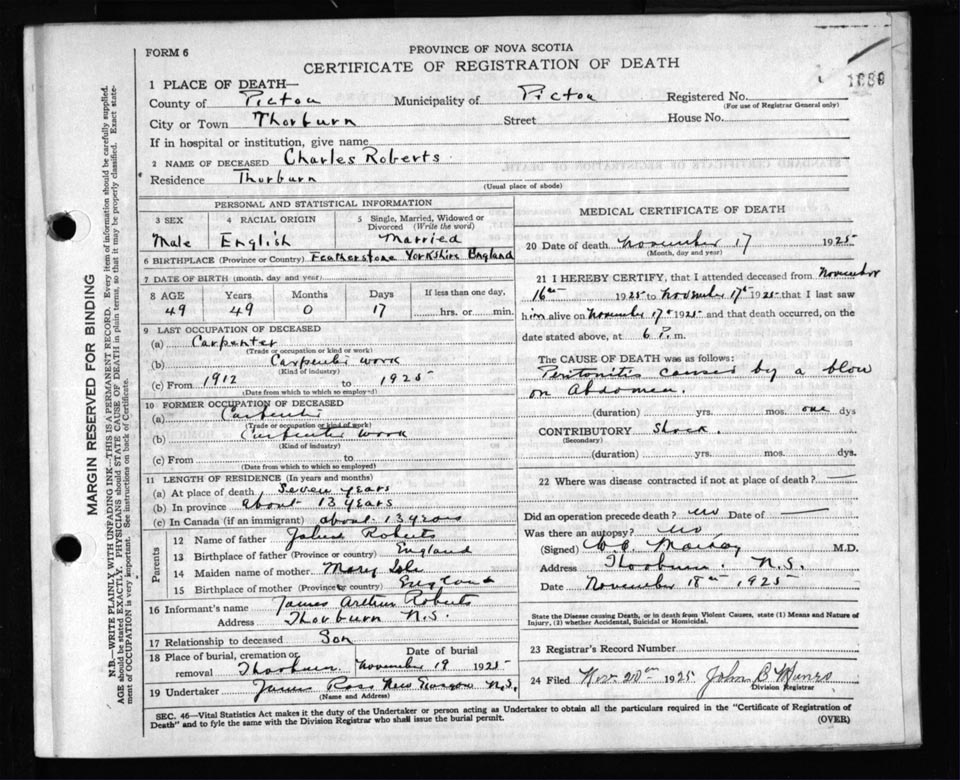 FORM 6
PROVINCE OF NOVA SCOTIA
CERTIFICATE OF REGISTRATION OF DEATH
1 PLACE OF DEATH—
County of Pictou Municipality of Pictou Registered No.
(For use of Registrar General only)
City or Town Thorburn Street House No.
If in hospital or institution, give name
2 NAME OF DECEASED Charles Roberts
Residence Thorburn
(Usual place of abode)
PERSONAL AND STATISTICAL INFORMATION
3 SEX 4 RACIAL ORIGIN 5 Single, Married, Widowed or Divorced (Write the word)
Male English Married
6 BIRTHPLACE (Province or Country) Featherstone Yorkshire England
7 DATE OF BIRTH (month, day and year)
8 AGE Years Months Days If less than one day,
49 49 0 17 hrs. or min.
9 LAST OCCUPATION OF DECEASED
(a) Carpenter
(Trade or occupation or kind of work)
(b) Carpenter work
(Kind of industry)
(c) From 1912 to 1925
(Date from which to which so employed)
10 FORMER OCCUPATION OF DECEASED
(a) Carpenter
(Trade or occupation or kind of work)
(b) Carpenter work
(Kind of industry)
(c) From to
(Date from which to which so employed)
11 LENGTH OF RESIDENCE (In years and months)
(a) At place of death Seven years
(b) In province about 13 years
(c) In Canada (if an immigrant) about 13 years
Parents
12 Name of father Roberts
13 Birthplace of father (Province or country) England
14 Maiden name of mother Mary
15 Birthplace of mother (Province or country) England
16 Informant's name James Arthur Roberts
Address Thorburn N.S.
17 Relationship to deceased Son
18 Place of burial, cremation or removal Thorburn Date of burial November 19 1925
19 Undertaker James Ross New Glasgow N.S.
(Name and Address)
MEDICAL CERTIFICATE OF DEATH
20 Date of death November 17 1925
(Month, day and year)
21 I HEREBY CERTIFY, that I attended deceased from November
16th 1925 to November 17th 1925 that I last saw
him alive on November 17th 1925 and that death occurred, on the
date stated above, at 6 P. m.
The CAUSE OF DEATH was as follows:
Peritonitis caused by a blow
on Abdomen.
(duration) yrs. mos. one dys
CONTRIBUTORY Shock.
(Secondary)
(duration) yrs. mos. dys.
22 Where was disease contracted if not at place of death? —
Did an operation precede death? no Date of —
Was there an autopsy? no
(Signed) MacKay M.D.
Address Thorburn. N.S.
Date November 18th 1925
State the Disease causing Death, or in death from Violent Causes, state (1) Means and Nature of
Injury, (2) whether Accidental, Suicidal or Homicidal.
23 Registrar's Record Number
24 Filed Nov 20th 1925 John B Munro
Division Registrar
SEC. 46—Vital Statistics Act makes it the duty of the Undertaker or person acting as Undertaker to obtain all the particulars required in the "Certificate of Registration of
Death" and to fyle the same with the Division Registrar who shall issue the burial permit.
(OVER)
MARGIN RESERVED FOR BINDING
N.B.—WRITE PLAINLY, WITH UNFADING INK—THIS IS A PERMANENT RECORD. Every item of information should be carefully supplied.
AGE should be stated EXACTLY. PHYSICIANS should STATE CAUSE OF DEATH in plain terms, so that it may be properly classified. Exact state-
ment of OCCUPATION is very important. See instructions on back of Certificate.